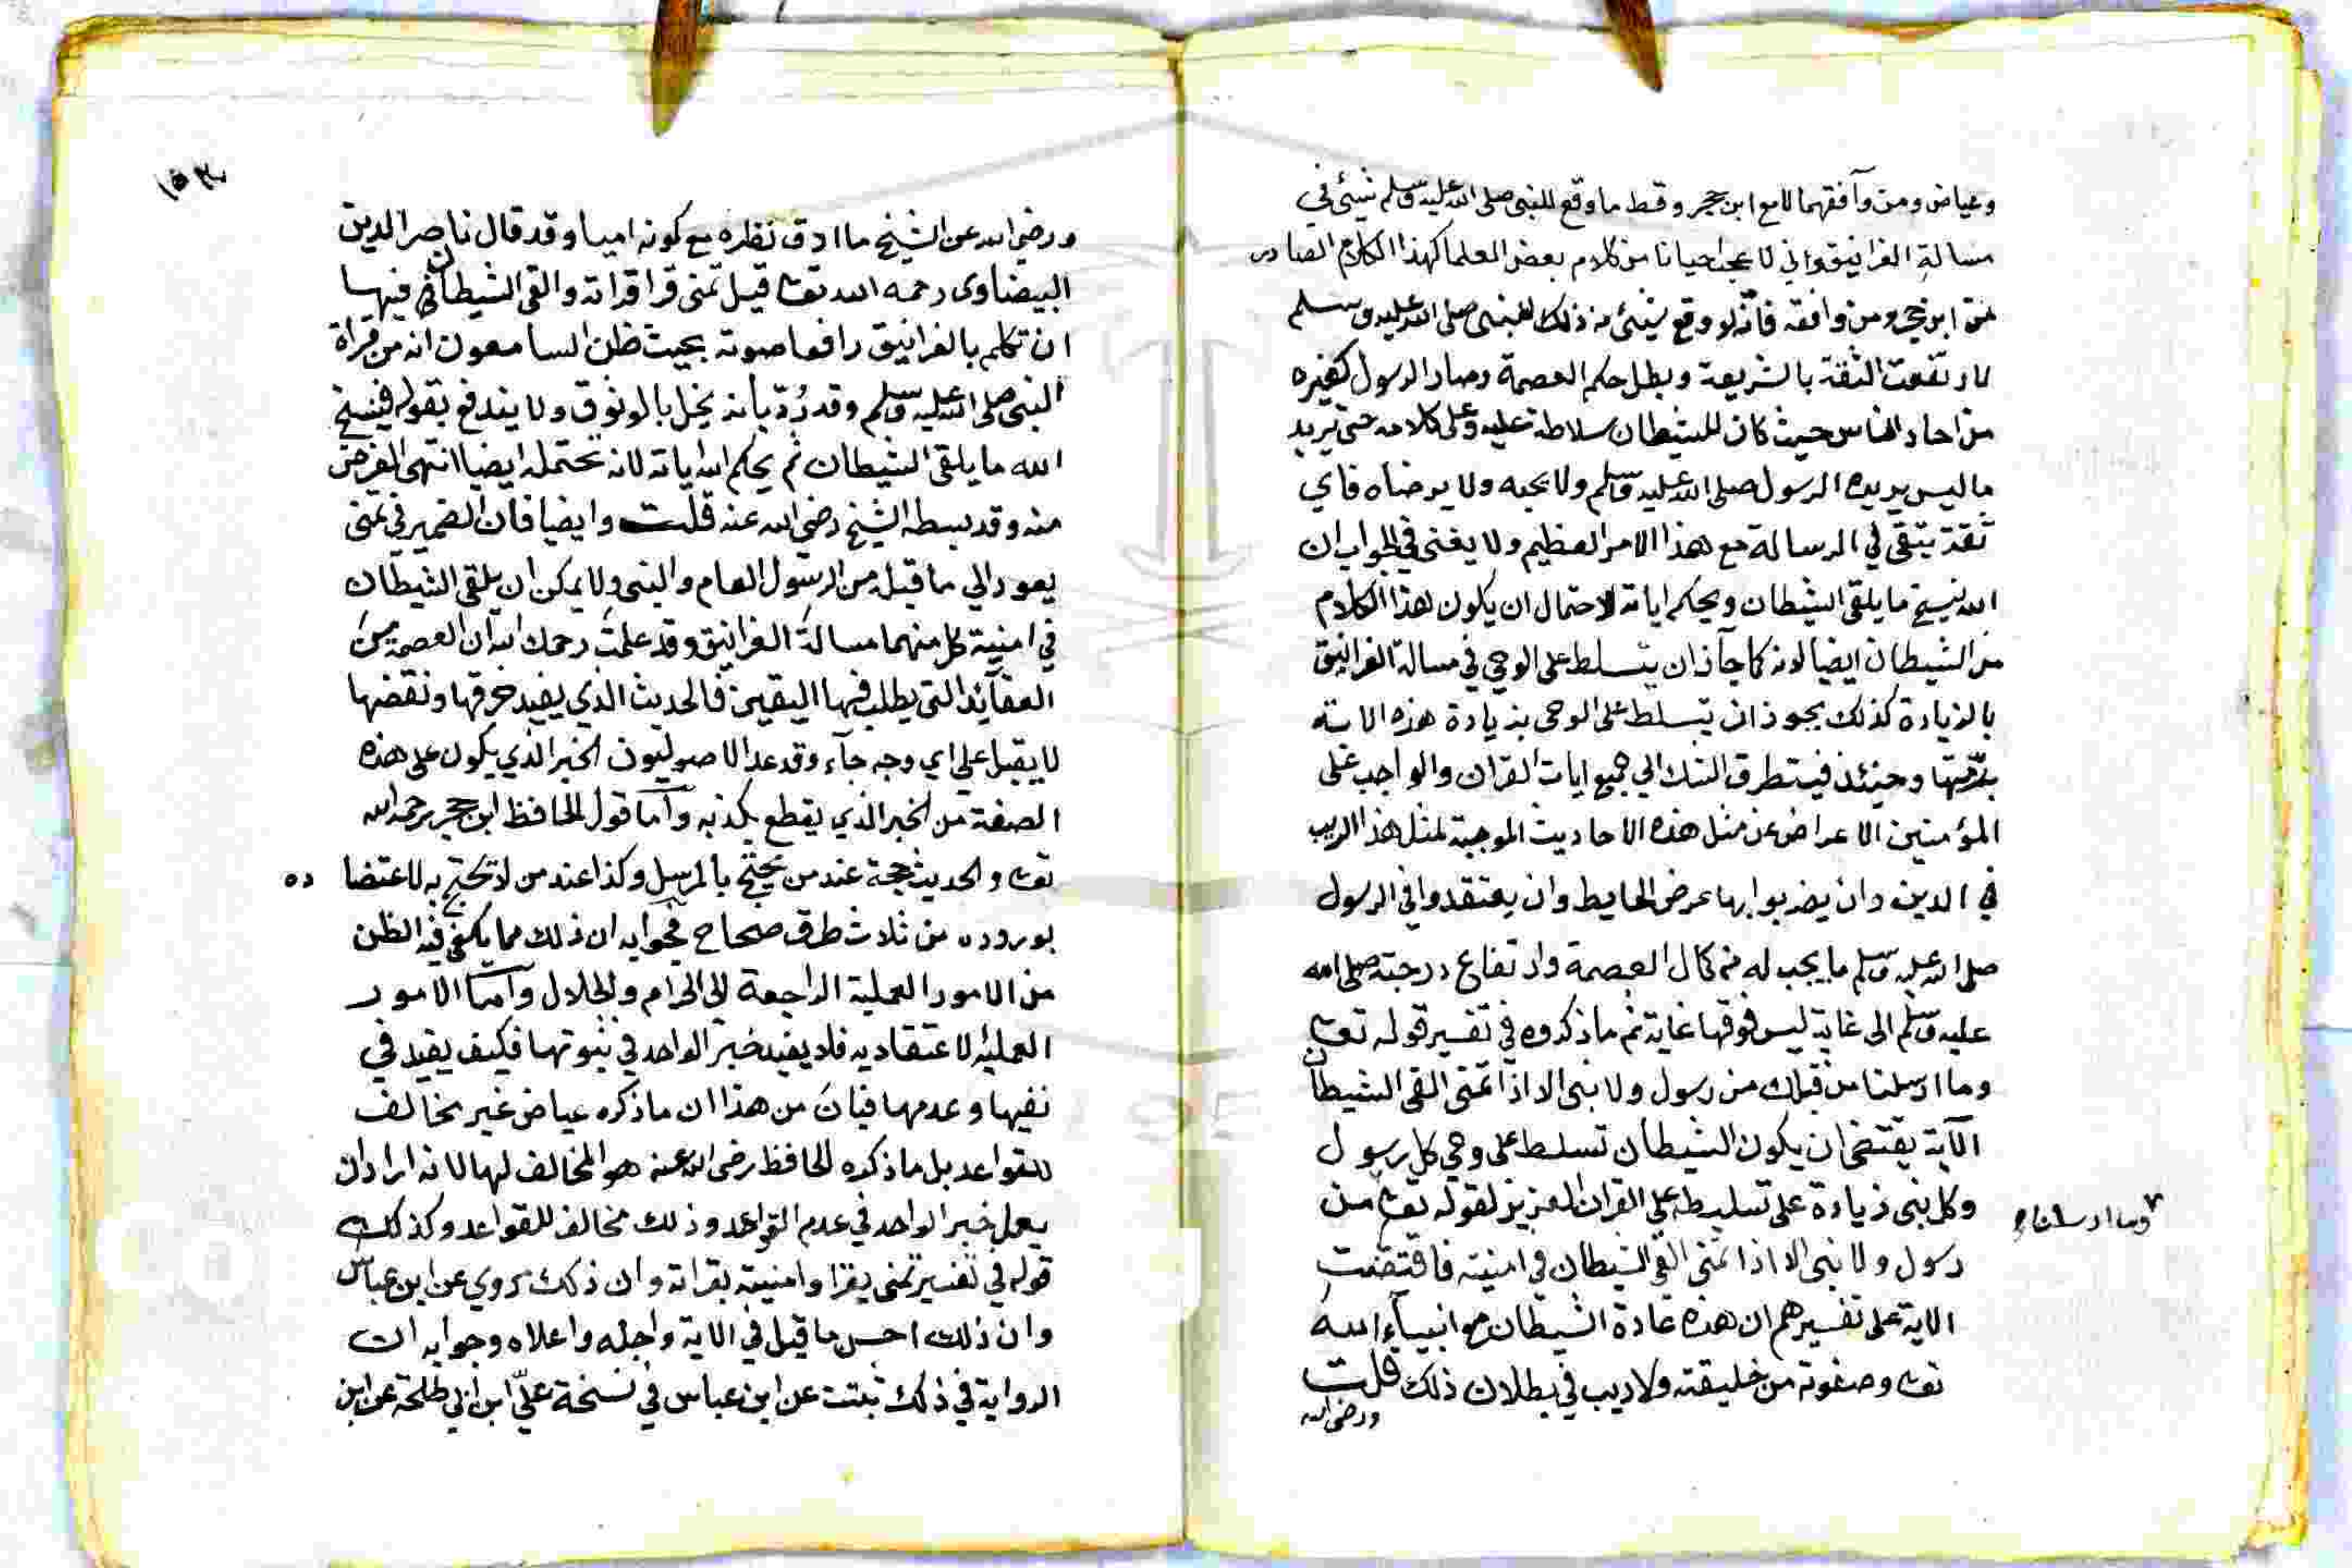 وعياض ومن وافقهما لا مع ابن حجر وقط ما وقع للنبي صلى الله عليه وسلم شيئ في
مسالة الغرانيق واني لاعجب احيانا من كلام بعض العلما كهذا الكلام الصادر
من ابن حجر ومن وافقه فانه لو وقع شيئ من ذلك للنبي صلى الله عليه وسلم
لارتفعت الثقة بالشريعة وبطل حكم العصمة وصار الرسول كغيره
من احاد الناس حيث كان للشيطان سلاطة عليه وعلى كلامه حتى يزيد
ما ليس يريده الرسول صلى الله عليه وسلم ولا يحبه ولا يرضاه فاي
ثقة تبقى في الرسالة مع هذا الامر العظيم ولا يغني في الجواب ان
الله ينسخ ما يلقى الشيطان ويحكم اياته لاحتمال ان يكون هذا الكلام
من الشيطان ايضا لانه كما جاز ان يتسلط على الوحي في مسالة الغرانيق
بالزيادة كذلك يجوز ان يتسلط على الوحي بزيادة هذه الاية
برمتها وحينئذ فيتطرق الشك الي جميع ايات القران والواجب على
المؤمنين الاعراض عن مثل هذه الاحاديث الموجبة لمثل هذا الريب
في الدين وان يضربوا بها عرض الحايط وان يعتقدوا في الرسول
صلى الله عليه وسلم ما يجب له من كمال العصمة وارتفاع درجته صلى الله
عليه وسلم الى غاية ليس فوقها غاية ثم ما ذكروه في تفسير قوله تعا
وما ارسلنا من قبلك من رسول ولا نبي الا اذا تمنى القى الشيطان
الآية يقتضى ان يكون الشيطان تسلط على وحي كل رسول
وكل نبي زيادة على تسليطه على القران العزيز لقوله تعا من
وما ارسلنا
رسول ولا نبي الا اذا تمنى القى الشيطان في امنيته فاقتضت
الاية على تفسيرهم ان هذه عادة الشيطان مع انبياء الله
تعا وصفوته من خليقته ولا ريب في بطلان ذلك قلت
ورضى الله
١٥٣
ورضى الله عن الشيخ ما ادق نظره مع كونه اميا وقد قال ناصر الدين
البيضاوى رحمه الله تعا قيل تمنى قرا قراته والقى الشيطان فيها
ان تكلم بالغرانيق رافعا صوته بحيث ظن السامعون انه من قراة
النبي صلى الله عليه وسلم وقد رُدّ بأنه يخل بالوثوق ولا يندفع بقوله فينسخ
الله ما يلقى الشيطان ثم يحكم الله اياته لانه يحتمله ايضا انتهى الغرض
منه وقد بسطه الشيخ رضي الله عنه قلت وايضا فان الضمير في تمنى
يعود الي ما قبله من الرسول العام والنبي ولا يمكن ان يلقى الشيطان
في امنية كل منهما مسالة الغرانيق وقد علمت رحمك الله ان العصمة من
العقائد التي يطلب فيها اليقين فالحديث الذي يفيد خرقها ونقضها
لا يقبل على اي وجه جآء وقد عد الاصوليون الخبر الذي يكون على هذه
الصفة من الخبر الذي يقطع بكذبه وآما قول الحافظ ابن حجر رحمه الله
تعا والحديث حجة عند من يحتج بالمرسل وكذا عند من لا يحتج به للاعتضاده
بوروده من ثلاث طرق صحاح فجوابه ان ذلك مما يكفى فيه الظن
من الامور العملية الراجعة الى الحرام والحلال وآما الامور
العملية الاعتقاديه فلا يفيد خبر الواحد في ثبوتها فكيف يفيد في
نفيها وعدمها فبان من هذا ان ما ذكره عياض غير مخالف
للقواعد بل ما ذكره الحافظ رضى الله عنه هو المخالف لها لانه اراد ان
يعمل خبر الواحد في عدم القواعد وذلك مخالف للقواعد وكذلك
قوله في تفسير تمنى يقرا وامنيته بقراته وان ذلك مروي عن ابن عباس
وان ذلك احسن ما قيل في الاية واجله واعلاه وجوابه ان
الرواية في ذلك ثبتت عن ابن عباس في نسخة عليّ ابن ابي طلحة عن ابن